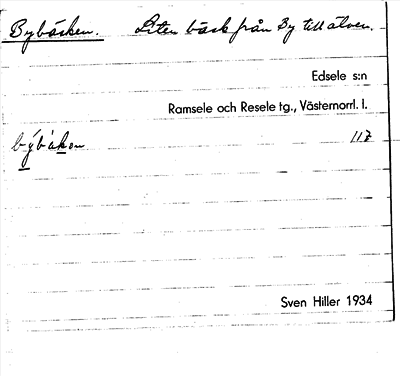 Bybäcken. Liten bäck från By till älven.
Edsele s:n
Ramsele och Resele tg., Västernorrl. l.
býbäkon 117
Sven Hiller 1934